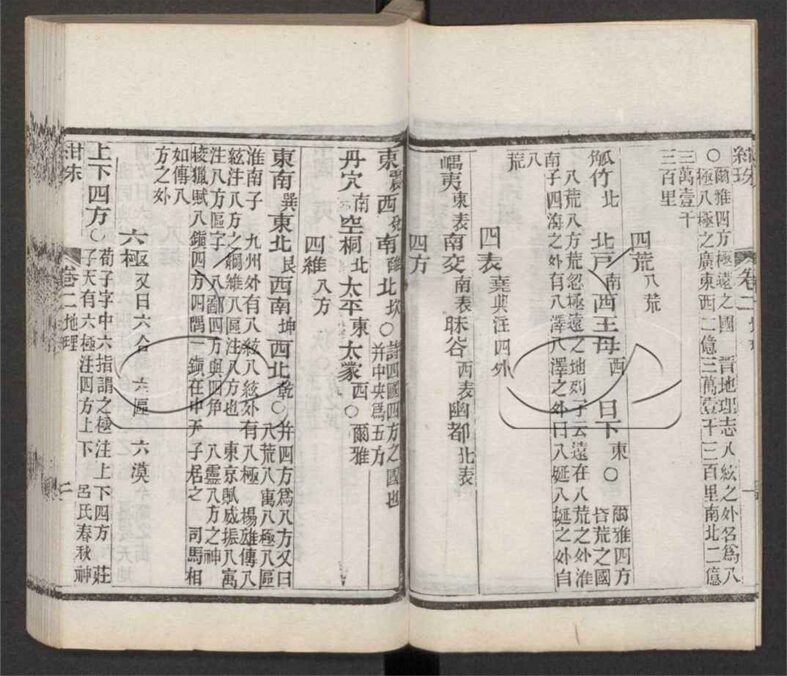 紺珠 卷二 地理 一
〇爾雅四方極遠之國 晋地理志八紘之外名爲八
極八極之廣東西二億三萬壹千三百里南北二億
三萬壹千
三百里
四荒八荒
觚竹北 北戶南 西王母西 日下東〇 爾雅四方皆荒之國
八荒八方荒忽極遠之地列子云遠在八荒之外淮
南子四海之外有八澤八澤之外曰八埏八埏之外自
八
荒
四表堯典注四外
嵎夷東表 南交南表 昧谷西表 幽都北表
四方
東震西兌南離北坎〇詩四國四方之國也并中央爲五方
丹穴南 空桐北 太平東 太蒙西〇爾雅
四維八方
東南巽東北艮西南坤西北乾〇并四方爲八方又曰八荒八寓八極八區
淮南子 九州外有八紘八紘外有八極 揚雄傳八
紘注八方之綱維八區注八方也 東京賦威振八寓
注八方區宇 八鄙四方與四角 八靈八方之神
校獵賦八鎮四方四隅一鎮在中天子居之 司馬相
如傳八
方之外
六極又曰六合 六區 六漠
上下四方〇荀子宇中六指謂之極注上下四方 莊子天有六極注四方上下 呂氏春秋神
紺珠 卷二 地理 二